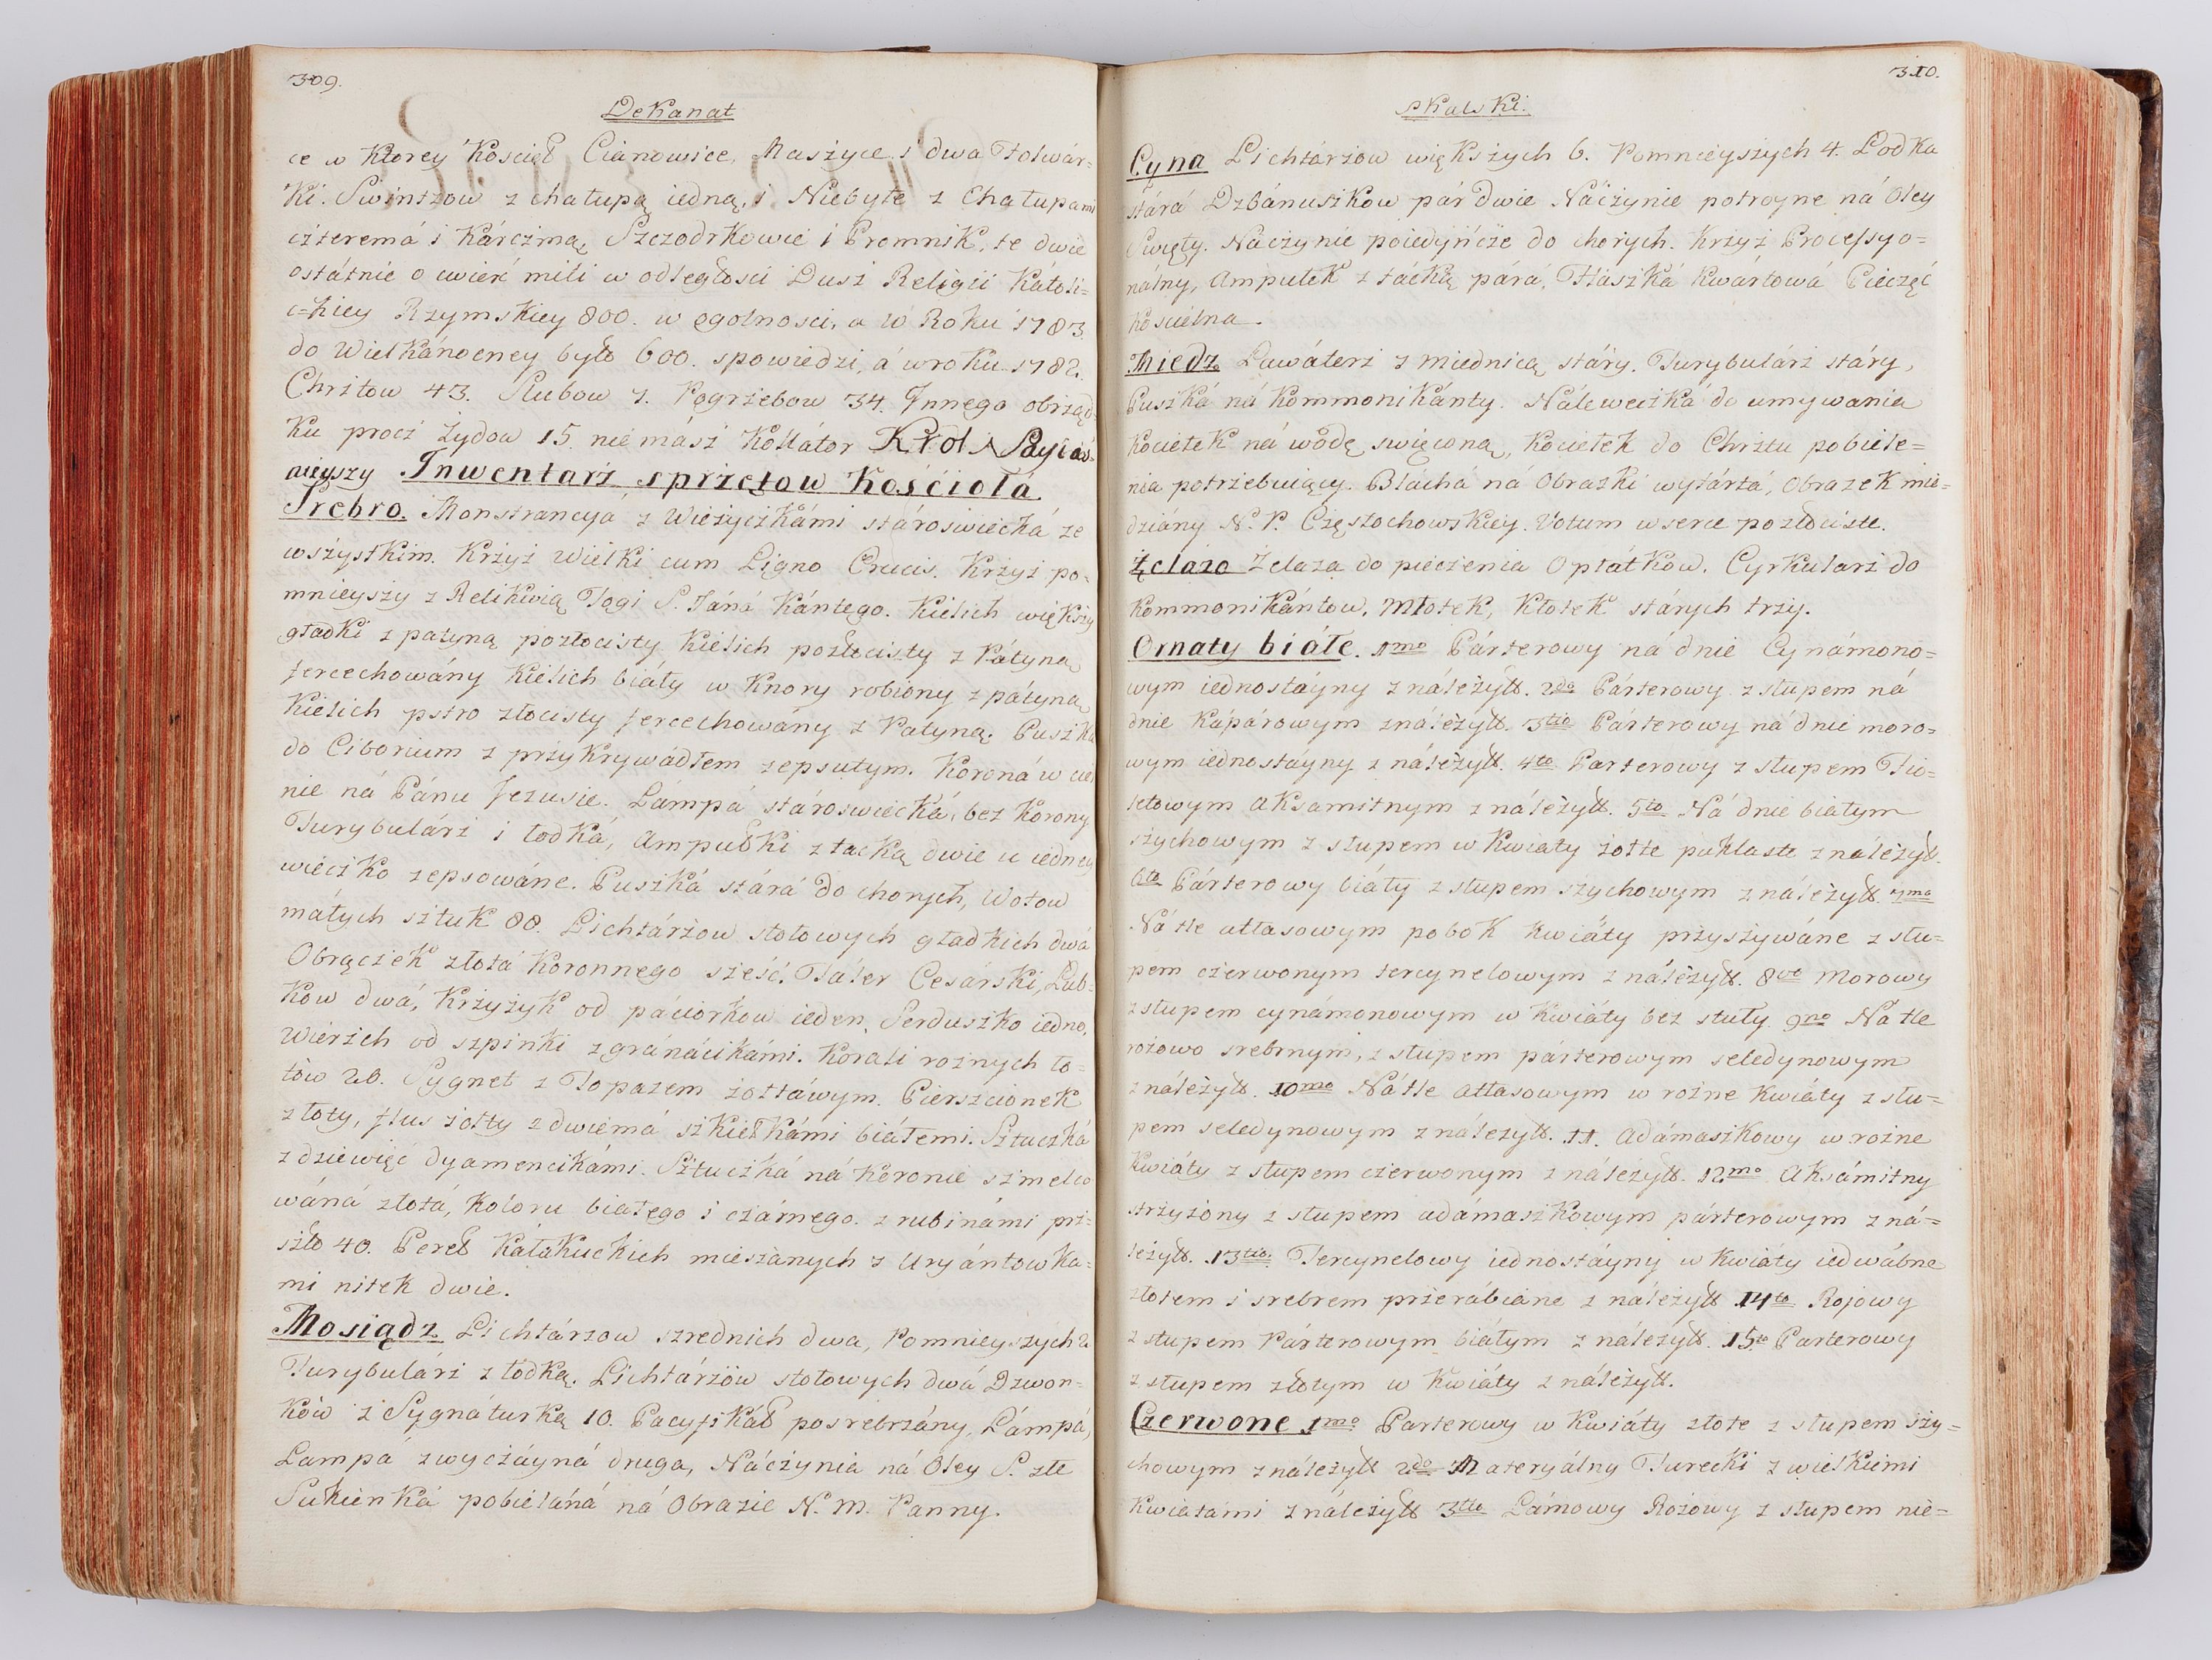 309.
Dekanat
ce w ktorey Kościół Cianowice, Maszyce i dwa Folwár=
ki. Swintzow z chałupą iedną, i Niebyłe z Chałupami
czteremá i Kárczmą, Szczodrkowie i Promnik, te dwie
ostátnie o cwierć mili w odległosci Dusz Religii Kátoli=
ckiey Rzymskiey 800. w ogolnosci, a w Roku 1783.
do Wielkánocney było 600. spowiedzi, á w roku 1782.
Chrztow 43. Slubow 7. Pogrzebow 34. Innego obrząd=
ku procz Zydow 15 nie mász Kollátor Krol Nayiáś=
nieyszy Inwentarz sprzętow Kośćioła
Srebro. Monstrancya z Wieżyczkámi stároswiecká ze
wszystkim. Krzyż Wielki cum Ligno Crucis. Krzyż po=
mnieyszy z Relikwią Togi S. Jáná Kántego. Kielich większy
gładki z patyną pozłocisty Kielich pozłocisty z Pátyną
fercechowány Kielich biáły w Knory robiony z pátyną
Kielich pstro złocisty fercechowány z Patyną. Puszka
do Ciborium z przykrywádłem zepsutym. Koroná w cier
nie ná Pánu Jezusie. Lampá stároswiecká, bez Korony
Turybularz i łodká, Ampułki z tacką dwie u iedney
wieczko zepsowáne. Puszká stárá do chorych, Wotow
máłych sztuk 88. Lichtárzow stołowych gładkich dwá
Obrączek złotá Koronnego sześć. Táler Cesárski, Lub=
kow dwá, Krzyżyk od páciorkow ieden, Serduszko iedno,
Wierzch od szpinki z gránácikámi. Korali rożnych ło=
tow 26. Sygnet z Topazem żołtáwym. Pierszcionek
złoty, flus żołty z dwiemá szkiełkámi białemi. Sztuczká
z dziewięć dyamencikámi. Sztuczká ná Koronie szmelco
wáná złotá, Koloru białego i czárnego z rubinámi prz=
szło 40. Pereł Kałákuckich mieszanych z Uryántowka=
mi nitek dwie.
Mosiądz Lichtárzow szrednich dwa, Pomnieyszych 2
Turybularz z łodką. Lichtárzów stołowych dwá Dzwon=
ków z Sygnáturką 10. Pacyfikáł posrebrzány, Lámpá,
Lampá zwyczáyná druga, Náczynia ná Oley S. złe
Sukienká pobieláná ná Obrazie N. M. Panny.
310.
Skalski.
Cyna Lichtárzow większych 6. Pomnieyszych 4. Lodka
stárá Dzbánuszkow pár dwie Náczynie potroyne ná Oley
Swięty. Naczynie poiedyńcze do chorych. Krzyż Processyo=
nálny, Ampułek z tácką párá, Flaszká Kwartowá Pieczęć
Kościelna.
Miedz Lawáterz z miednicą stáry. Turybularz stáry,
Puszká ná Kommonikánty. Náleweczká do umywania
Kociełek ná wodę swięconą, Kociełek do Chrztu pobiele=
nia potrzebuiący. Bláchá ná Obrazki wytárta, Obrazek mie=
dziány N. P. Częstochowskiey. Votum w serce pozłociste.
Żelazo Żelaza do pieczenia Opłátkow. Cyrkularz do
Kommonikántow, Młotek, Kłotek stárych trzy.
Ornaty białe. 1mo Párterowy ná dnie Cynámono=
wym iednostáyny z náleżyt. 2do Párterowy z słupem ná
dnie Kapárowym z náleżyt. 3tio Párterowy ná dnie moro=
wym iednostáyny z náleżyt. 4to Parterowy z słupem Fio=
letowym aksamitnym z náleżyt. 5to Ná dnie białym
szychowym z słupem w Kwiaty żołte pukłaste z náleżyt.
6to Párterowy biáły z słupem szychowym z náleżyt. 7mo
Ná tle atłasowym pobok Kwiáty przyszywáne z słu=
pem czerwonym tercynelowym z náleżyt. 8vo Morowy
z słupem cynámonowym w Kwiáty bez stuły. 9no Ná tle
rożowo srebrnym, z słupem párterowym seledynowym
z náleżyt. 10mo Ná tle atłasowym w rożne Kwiáty z słu=
pem seledynowym z náleżyt. 11. Adámaszkowy w rożne
Kwiáty z słupem czerwonym z náleżyt. 12mo Aksámitny
strzyżony z słupem adámaszkowym párterowym z ná=
leżyt. 13tio. Tercynelowy iednostáyny w Kwiáty iedwábne
złotem i srebrem przerábiane z náleżyt 14to Rojowy
z słupem Párterowym biáłym z náleżyt. 15to Parterowy
z słupem złotym w Kwiáty z náleżyt.
Czerwone 1mo Parterowy w Kwiáty złote z słupem szy=
chowym z náleżyt 2do Materyálny Turecki z wielkiemi
Kwiatámi z náleżyt 3tio Lámowy Rożowy z słupem nie=